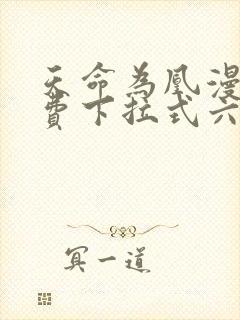 天命為凰漫
費下拉式六
冥一道